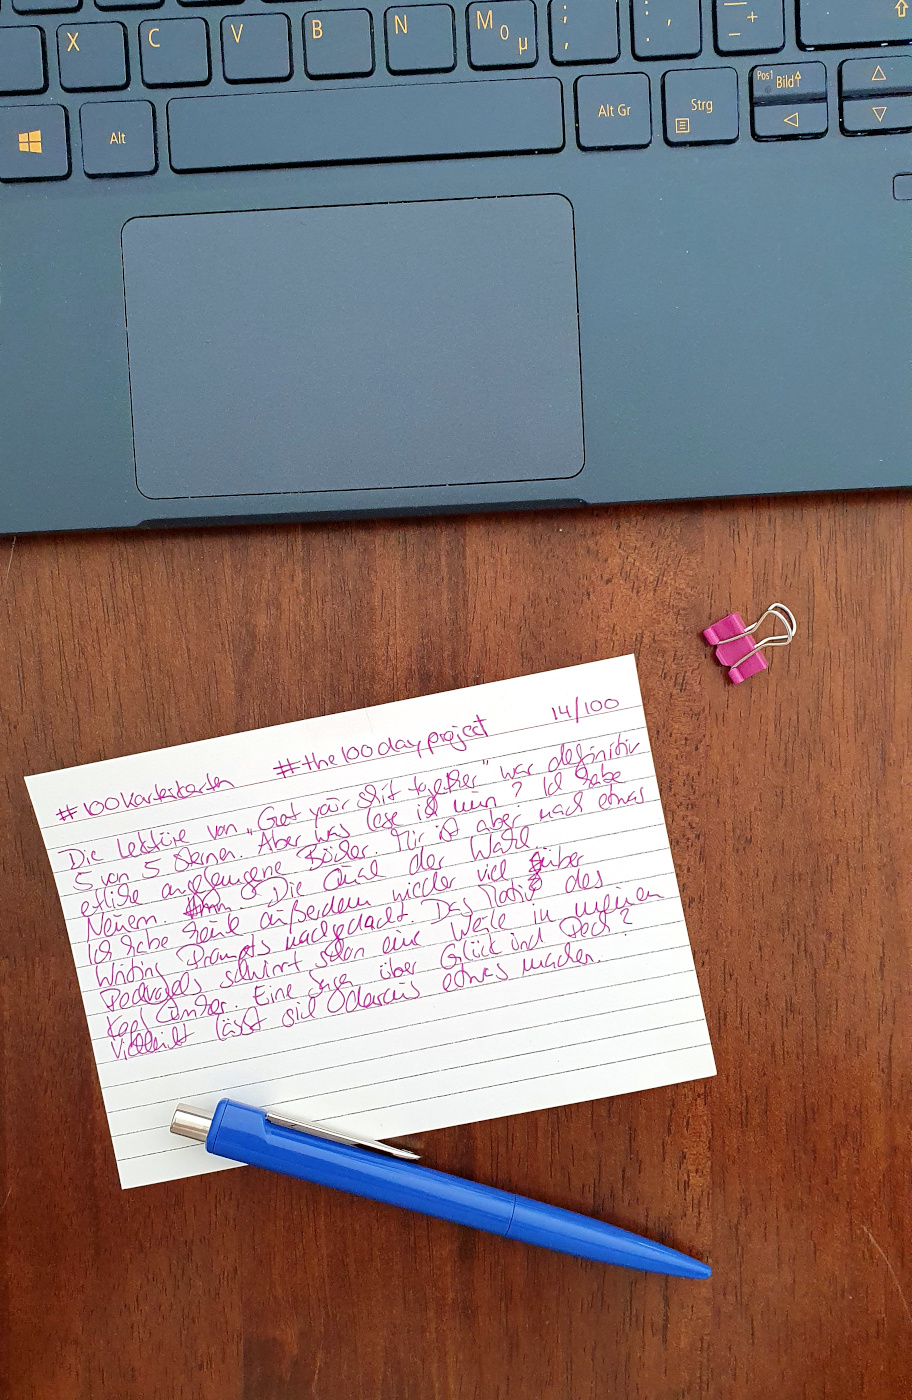 X C V B N M µ ; , : . _ - +
Alt Alt Gr Strg Pos1 Bild
14/100
#100karteikarten #the100dayproject
Die Lektüre von „Get your shit together" war definitiv
5 von 5 Sternen. Aber was lese ich nun? Ich habe
etliche angefangene Bücher. Mir ist aber nach etwas
Neuem. Die Qual der Wahl
Ich habe heute außerdem wieder viel über
Writing Prompts nachgedacht. Das Motiv des
Pechvogels schwirrt schon eine Weile in meinem
Kopf umher. Eine Story über Glück und Pech?
Vielleicht lässt sich daraus etwas machen.